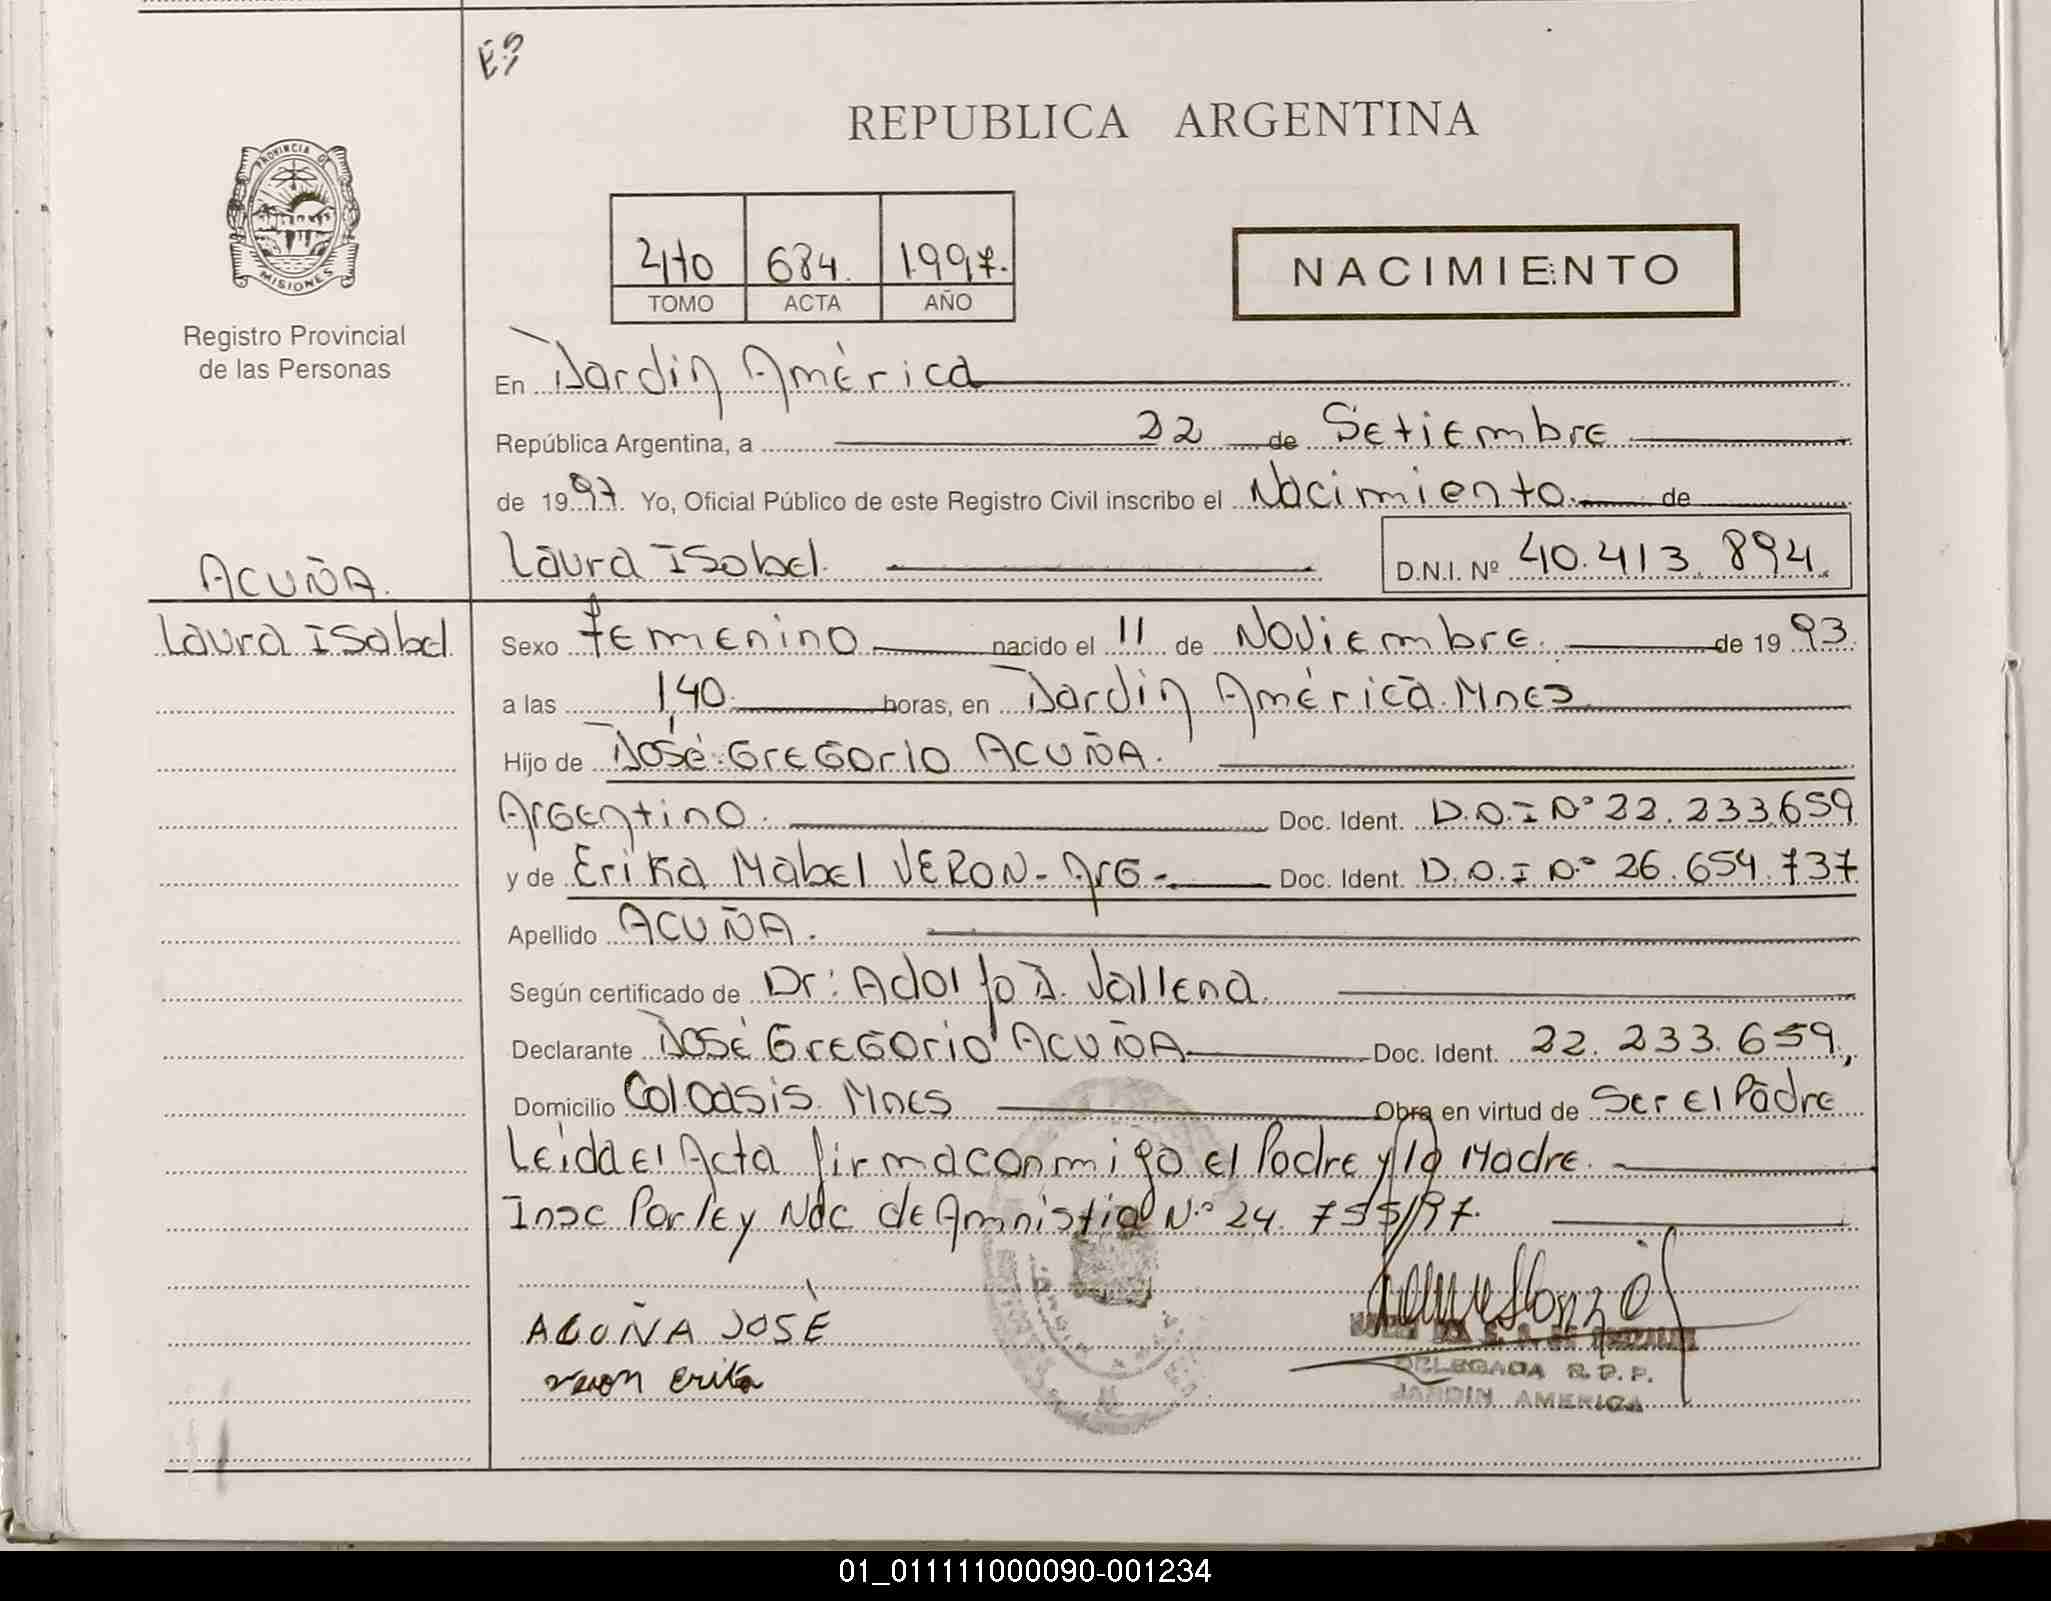 REPUBLICA ARGENTINA
PROVINCIA DE
MISIONES
Registro Provincial
de las Personas
4to 684. 1.997.
TOMO ACTA AÑO
NACIMIENTO
En Jardín América
República Argentina, a 22 de Setiembre
de 1997. Yo, Oficial Público de este Registro Civil inscribo el Nacimiento. de
ACUÑA.
Laura Isabel
Laura Isabel. D.N.I. Nº 40.413.894.
Sexo femenino nacido el 11 de Noviembre. de 1993.
a las 1,40 horas, en Jardín América. Mnes.
Hijo de José Gregorio ACUÑA.
Argentino. Doc. Ident. D.N.I Nº 22.233.659
y de Erika Mabel VERON- Arg- Doc. Ident. D.N.I Nº 26.654.737
Apellido ACUÑA.
Según certificado de Dr: Adolfo J. Vallena.
Declarante José Gregorio ACUÑA Doc. Ident. 22.233.659,
Domicilio Col Oasis. Mnes Obra en virtud de Ser el Padre
Leída el Acta firma conmigo el Padre y la Madre.
Insc Por ley Nac de Amnistia N.º 24.755/97.
ACUÑA JOSÉ
veron erika
DELEGADA R.P.P.
JARDIN AMERICA
01_011111000090-001234